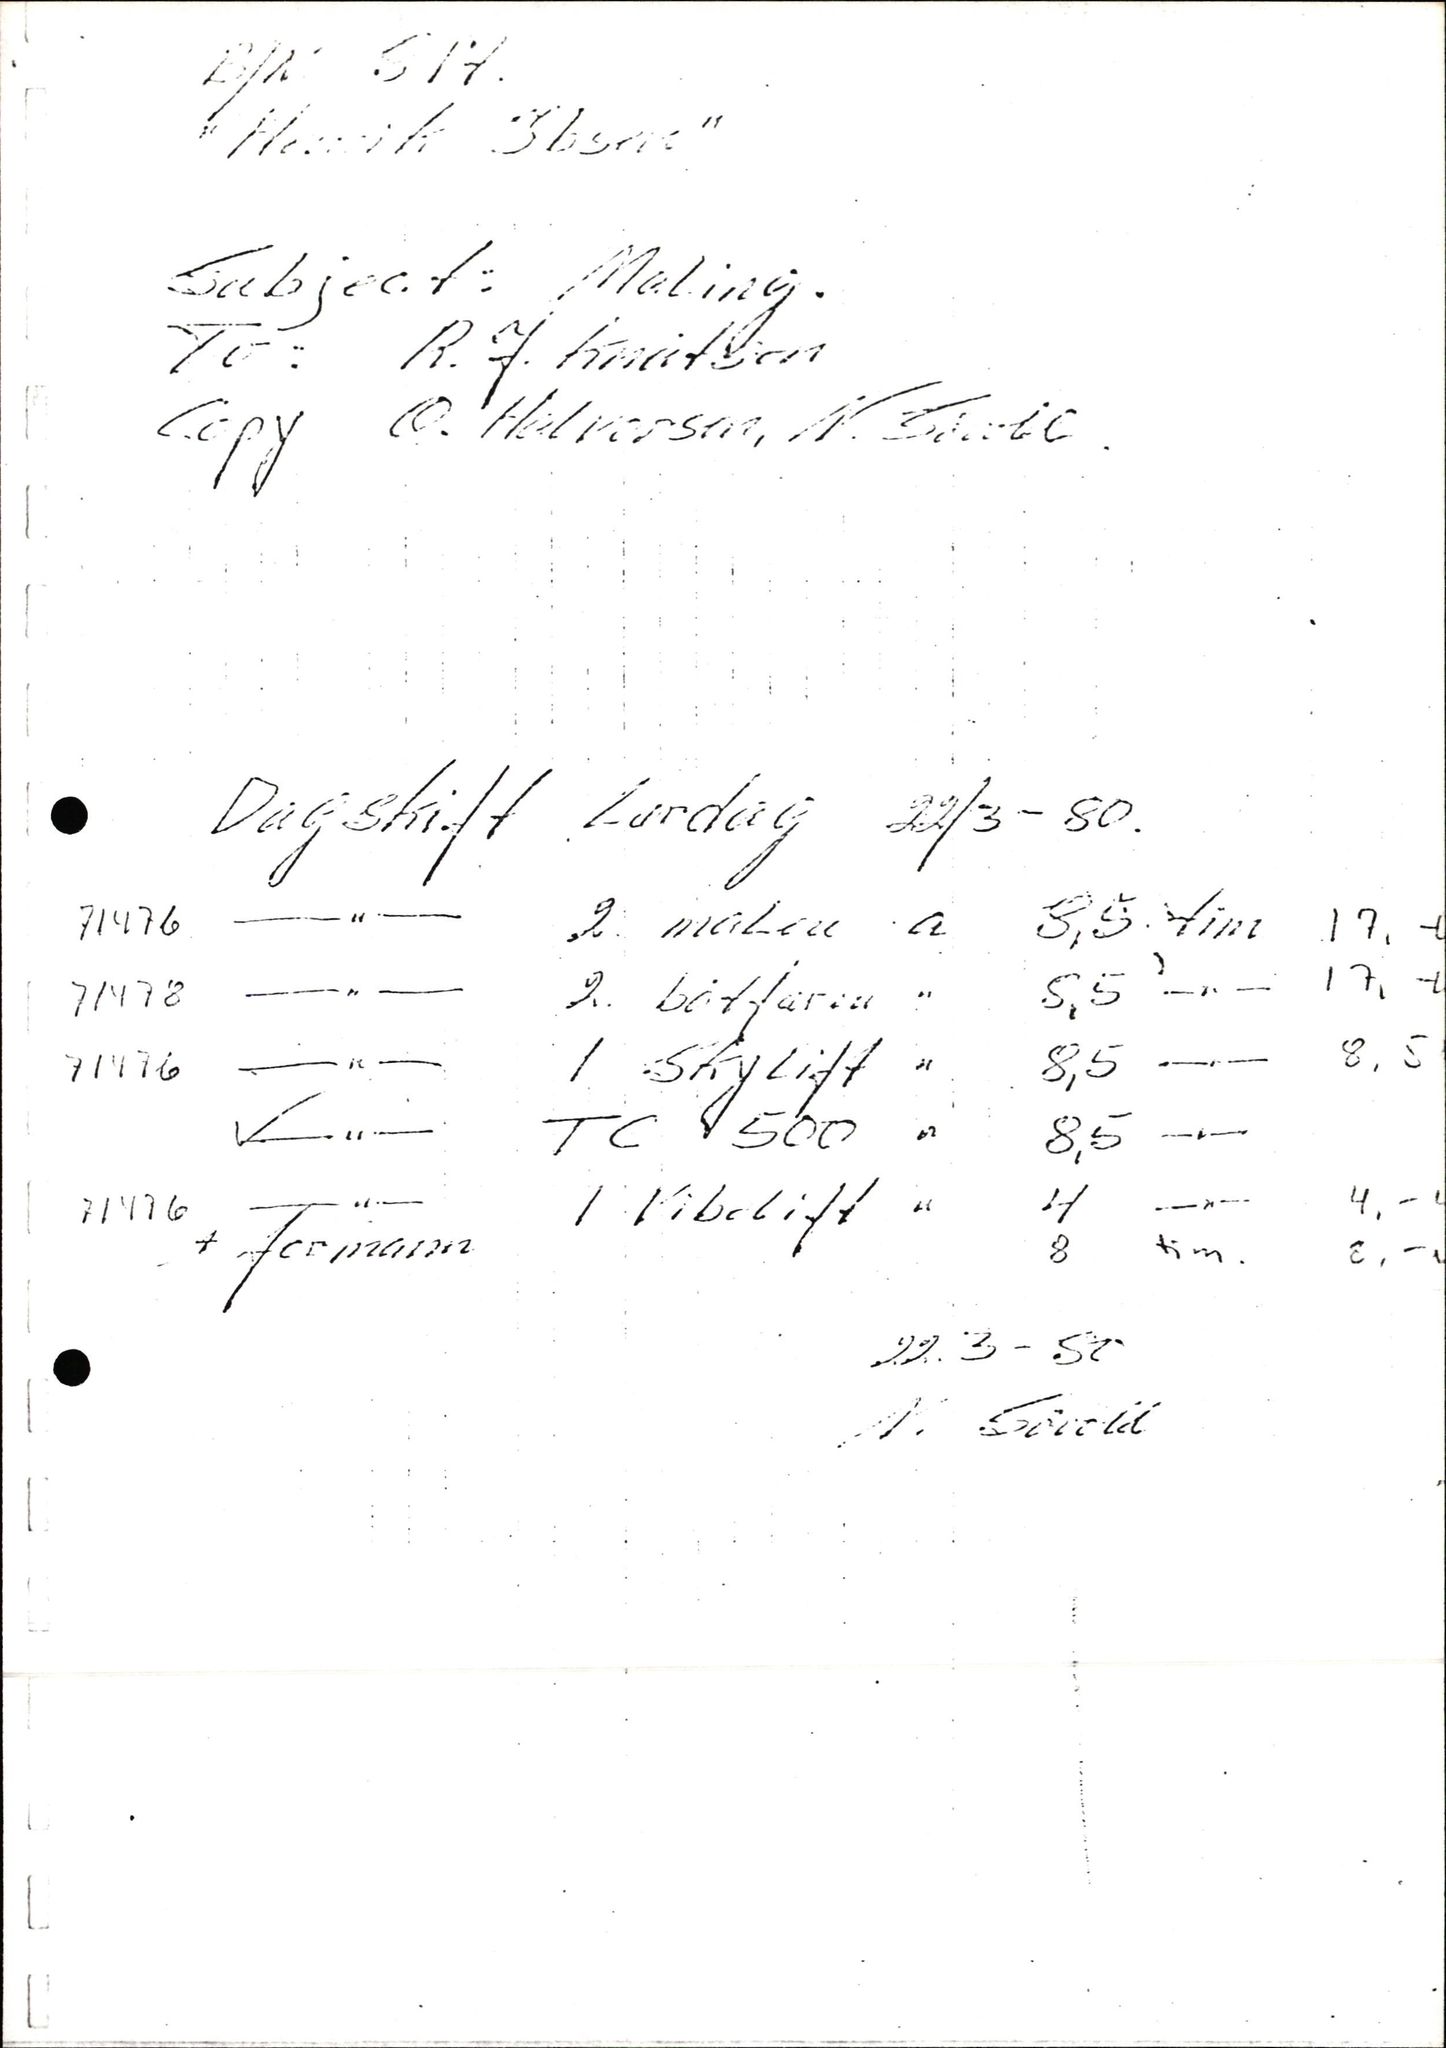 B/N 517.
"Henrik Ibsen"
Subject: Maling.
To: R. J. Knutson
Copy O. Halvorsen, N.
Dagskift Lørdag 22/3-80.
71476 —"— 2. malere a 8,5 tim 17,
71478 —"— 2. båtførere " 8,5 —"— 17,
71476 —"— 1 Skylift " 8,5 —"— 8,5
—"— TC 500 " 8,5 —"—
71476 —"— 1 Vibolift " 4 —"— 4,-
+ formann 8 tim. 8,-
22.3-80
N.